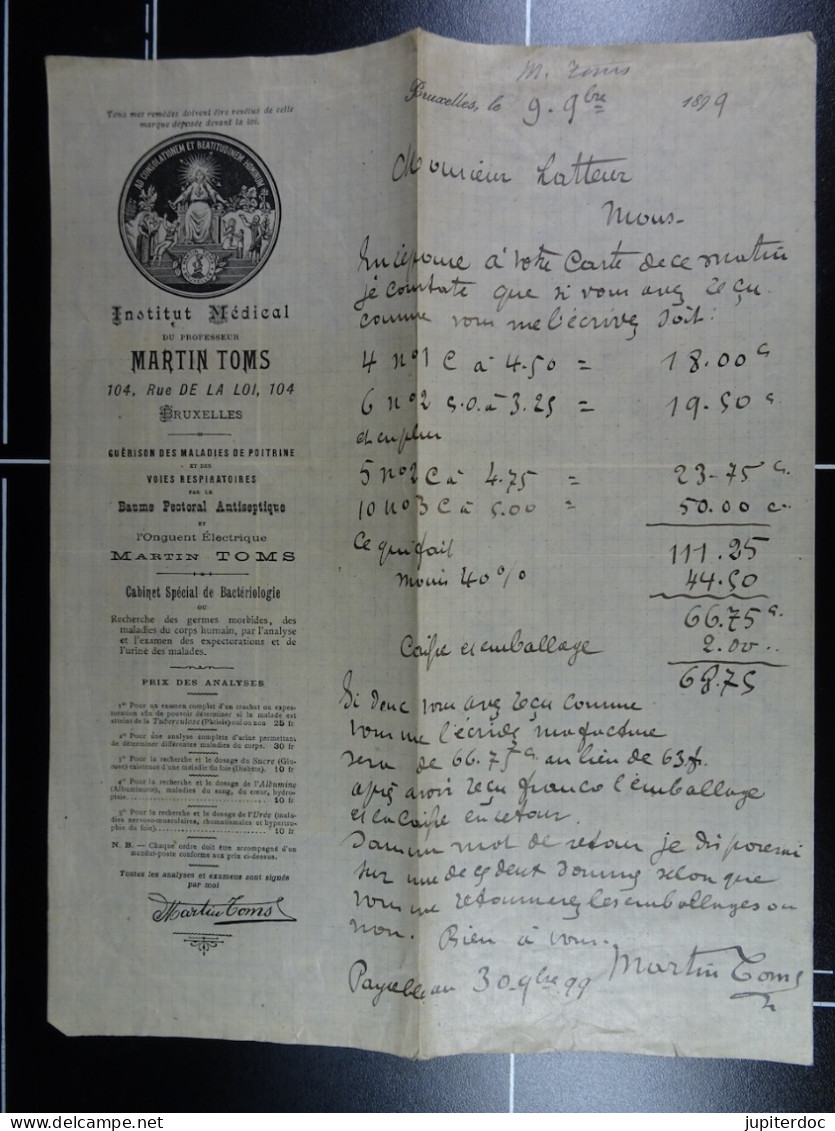 M. Toms
Bruxelles, le 9. 9bre 1899
Tous mes remèdes doivent être revêtus de cette
marque déposée devant la loi.
AD CONSOLATIONEM ET BEATITUDINEM HOMINUM
Institut Médical
DU PROFESSEUR
MARTIN TOMS
104, Rue DE LA LOI, 104
BRUXELLES
GUÉRISON DES MALADIES DE POITRINE
ET DES
VOIES RESPIRATOIRES
PAR LE
Baume Pectoral Antiseptique
ET
l'Onguent Électrique
MARTIN TOMS
Cabinet Spécial de Bactériologie
OU
Recherche des germes morbides, des
maladies du corps humain, par l'analyse
et l'examen des expectorations et de
l'urine des malades.
PRIX DES ANALYSES
1° Pour un examen complet d'un crachat ou expec-
toration afin de pouvoir déterminer si le malade est
atteint de la Tuberculose (Phtisie) oui ou non 25 fr
2° Pour une analyse complète d'urine permettant
de déterminer différentes maladies du corps. 30 fr
3° Pour la recherche et le dosage du Sucre (Glu-
cose) existence d'une maladie du foie (Diabète). 10 fr
4° Pour la recherche et le dosage de l'Albumine
(Albuminurie), maladies du sang, du cœur, hydro-
pisie. 10 fr
5° Pour la recherche et le dosage de l'Urée (mala-
dies nervoso-musculaires, rhumatismales et hypertro-
phie du foie). 10 fr
N. B. — Chaque ordre doit être accompagné d'un
mandat-poste conforme aux prix ci-dessus.
Toutes les analyses et examens sont signés
par moi
Martin Toms
Monsieur Latteur
Mons-
En réponse à votre Carte de ce matin
je constate que si vous avez reçu
comme vous me l'écrivez soit:
4 no 1 C à 4.50 = 18.00 c.
6 no 2 S.O. à 3.25 = 19.50 c.
et en plus
5 no 2 C à 4.75 = 23-75 c.
10 no 3 C à 5.00 = 50.00 c.
Ce qui fait 111.25
Moins 40% 44.50
66.75 c.
Caisse et emballage 2.00
68.75
Si donc vous avez reçu comme
vous me l'écrivez ma facture
sera de 66.75 c. au lieu de 63 f.
après avoir reçu franco l'emballage
et la caisse en retour.
Dans un mot de retour je disposerai
sur une de ces deux sommes selon que
vous me retournerez les emballages ou
non. Bien à vous.
Payable au 30 9bre 99 Martin Toms
jupiterdoc